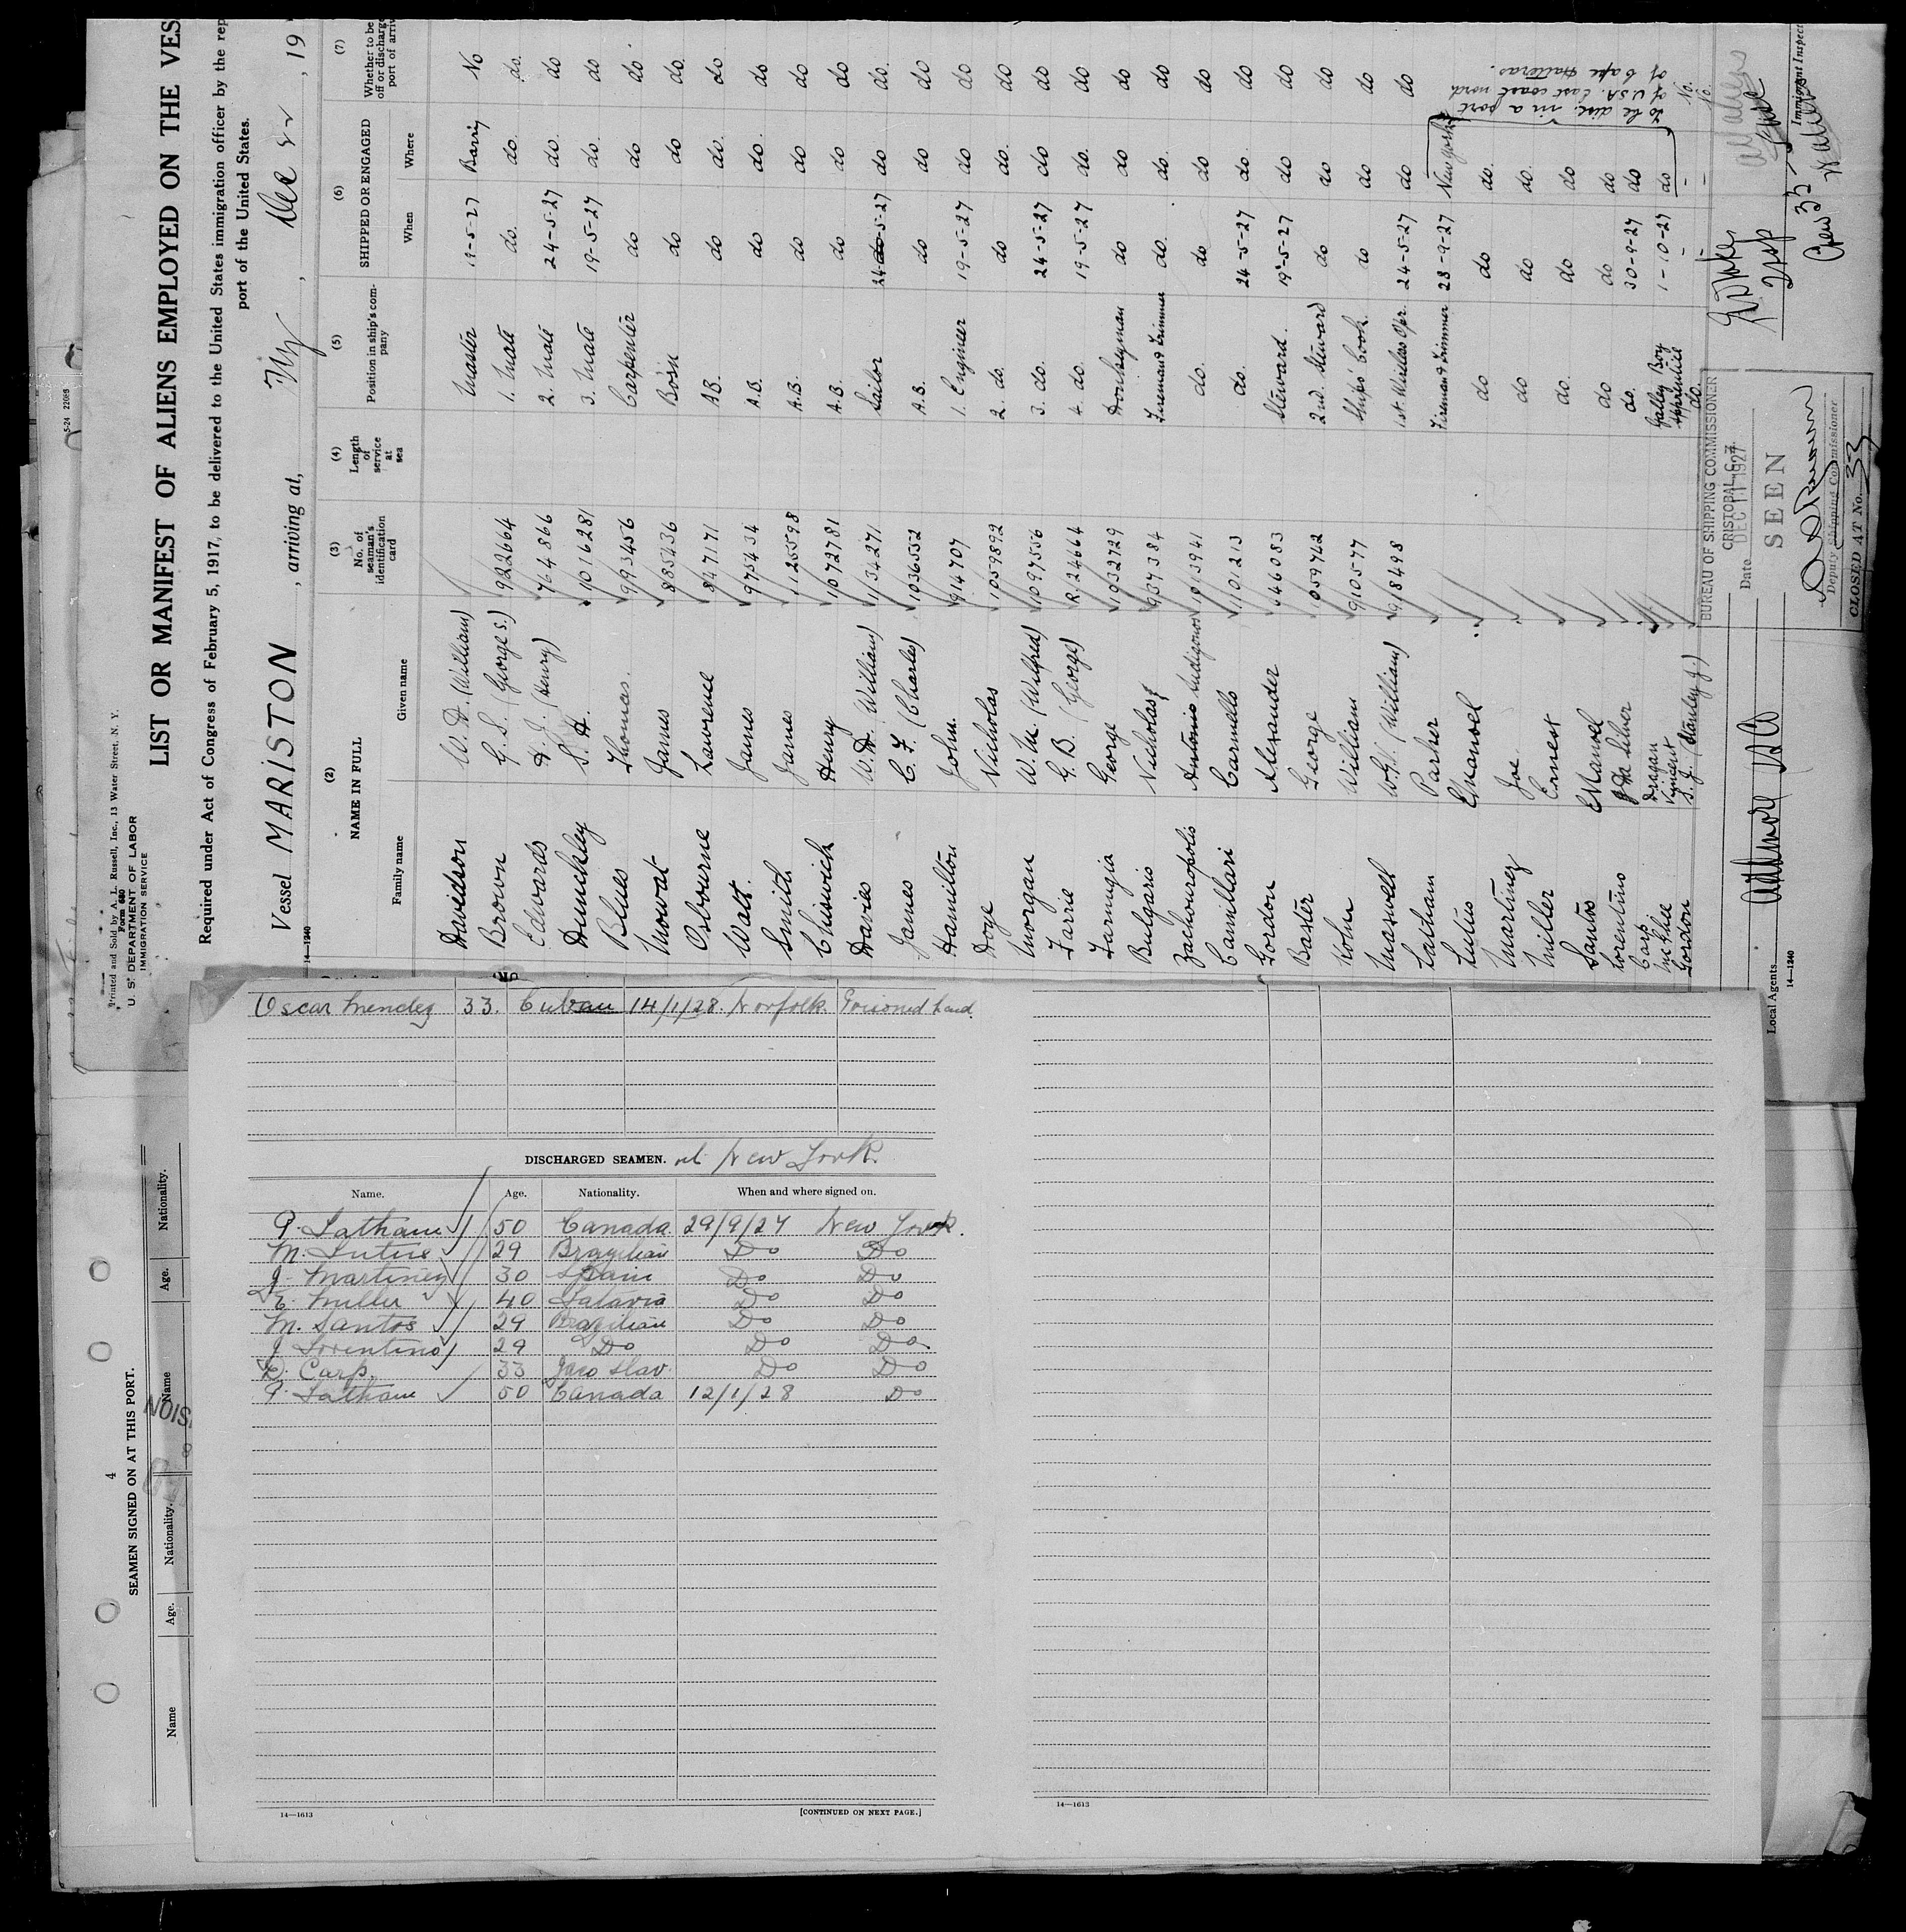 Printed and Sold by A. L. Russell, Inc., 13 Water Street, N. Y.
Form 680
U. S. DEPARTMENT OF LABOR
IMMIGRATION SERVICE
5-24 22085
LIST OR MANIFEST OF ALIENS EMPLOYED ON THE VES
Required under Act of Congress of February 5, 1917, to be delivered to the United States immigration officer by the rep
port of the United States.
Vessel MARISTON, arriving at, Ny, Dec 22, 19
14—1240
(2) NAME IN FULL
Family name Given name
(3) No. of seaman's identification card
(4) Length of service at sea
(5) Position in ship's company
(6) SHIPPED OR ENGAGED
When Where
(7) Whether to be off or discharge port of arriv
Davidson W. H. (William) Master 19-5-27 Barry No
Brown G. S. (George S.) 922664 1. Mate do. do. do.
Edwards H. J. (Henry) 764866 2. Mate 24-5-27 do. do
Dunckley S. H. 1016281 3. Mate 19-5-27 do. do
Blues Thomas. 993456 Carpenter do do do
Mowat James 885436 Bosn do do do.
Osbourne Lawrence 847171 A.B. do do. do
Watt. James 973434 A.B. do do. do
Smith James 1126598 A.B. do do do
Chiswick Henry 1072781 A.B. do do do
Davies W. H. (William) 1134271 Sailor 24-5-27 do do.
James C. F. (Charles) 1036552 A.B. do do do
Hamilton John. 914707 1. Engineer 19-5-27 do do
Doye Nicholas 1059892 2. do. do do. do
Morgan W. M. (Wilfred) 1097556 3. do. 24-5-27 do do
Farrie G. B. (George) R.124664 4. do. 19-5-27 do. do
Farrugia George 1032729 Donkeyman do do do
Bulgaris Nicholas 937384 Fireman & Trimmer do. do. do
Zachouropolis Antonio 1013941 do. do do do
Camillari Carmello 1101213 do. 24-5-27 do. do
Gordon Alexander 446083 Steward. 19-5-27 do do
Baster George 1059742 2nd. Steward do do do
Kohn William 910577 Ships' Cook. do do do
Maxwell W.G. (William) 918498 1st. Wireless Opr. 24-5-27 do do
Latham Parker Fireman & Trimmer 28-9-27 New York
Lutus Manoel do do do.
Martinez Joe do do do.
Miller Ernest do. do do
Santos Manoel do do do
Lorentino da Silver do. 30-9-27 do
Carp Dragan
McPhee Vincent Galley Boy 1-10-27 do
Gordon S. J. (Stanley J.) Apprentice do. – –
to be disc. in a port
of U.S.A. East coast nord
of Cape Hatteras.
No.
No.
BUREAU OF SHIPPING COMMISSIONER
CRISTOBAL, C. Z.
Date DEC 11 1927
SEEN
Deputy Shipping Commissioner
CLOSED AT No. 33
Crew 33
Immigrant Inspec
Local Agents
14—1240
Oscar Mendez 33. Cuban 14/1/28. Norfolk Poisoned hand.
DISCHARGED SEAMEN. at New York.
Name. Age. Nationality. When and where signed on.
P. Latham 50 Canada 29/9/27 New York.
M. Lutus 29 Brazilian Do Do
J. Martinez 30 Spain Do Do
E. Miller 40 Latavia Do Do
M. Santos 29 Brazilian Do Do
J Lorentino 29 Do Do Do
D. Carp. 33 Jugo Slav. Do Do
P. Latham 50 Canada 12/1/28 Do
14—1613
[CONTINUED ON NEXT PAGE.]
14—1613
4
SEAMEN SIGNED ON AT THIS PORT.
Name Age. Nationality. Name Age. Nationality.